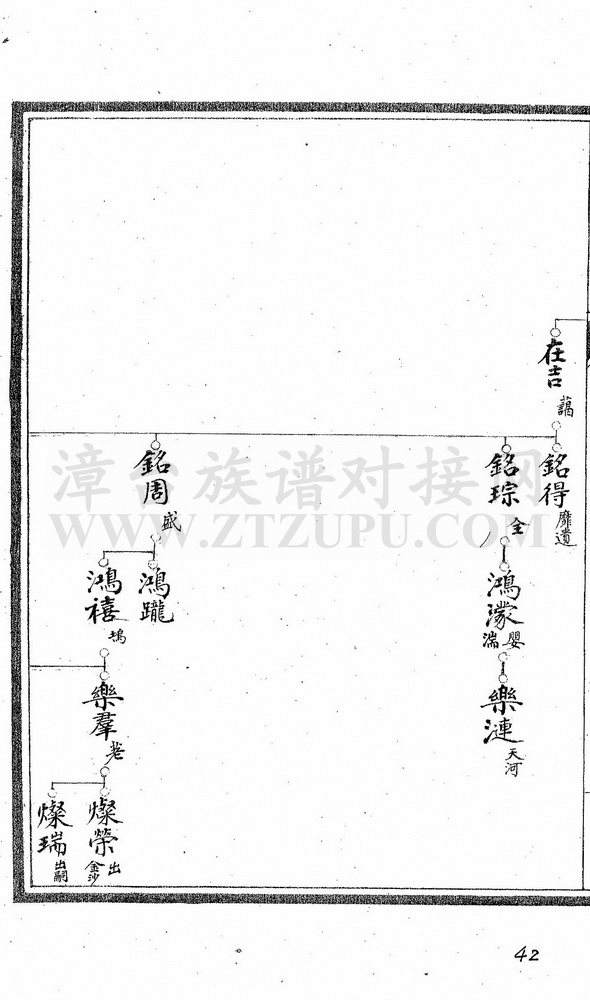 在吉
藹
銘得
靡遺
銘琮
全
鴻濛
嬰
湍
樂漣
天河
銘周
盛
鴻躘
鴻禧
塢
樂羣
老
燦榮
出
金沙
燦瑞
出嗣
漳台族谱对接网
WWW.ZTZUPU.COM
42